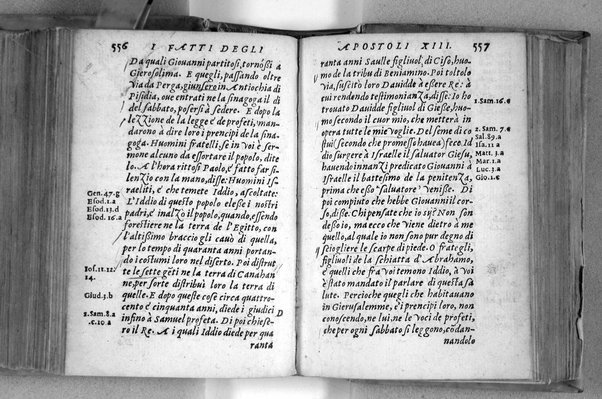 556 I FATTI DEGLI
Da quali Giouanni partitosi, tornossi a
Gierosolima. E quegli, passando oltre
via da Perga, giunsero in Antiochia di
Pisidia, oue entrati ne la sinagoga il dì
del sabbato, posersi à sedere. E dopo la
lezzione de la legge e de profeti, man-
darono à dire loro i prencipi de la sina-
goga. Huomini fratelli, se in voi è ser-
mone alcuno da essortare il popolo, dite
lo. A l'hora rittosi Paolo, e fatto far si-
lenzio con la mano, disse: Huomini Is-
raeliti, e che temete Iddio, ascoltate:
Gen. 47.g
L'Iddio di questo popolo elesse i nostri
Esod. 1.a
padri, e inalzò il popolo, quando, essendo
Esod. 13.d
Esod. 16.a
forestiere ne la terra de l'Egitto, con
l'altissimo braccio gli cauò di quella,
per lo tempo di quaranta anni portan-
do i costumi loro nel diserto. Poi distrut
Ios. 11.12.
14.
te sette gēti ne la terra di Canahan
ne, per sorte distribuì loro la terra di
Giud. 3.b
quelle. E dopo queste cose circa quattro-
cento e cinquanta anni, diede i giudici D
2. Sam. 8.a
.c. 10.a
infino à Samuel profeta. Di poi chiese-
ro il Re. A i quali Iddio diede per qua
ranta
APOSTOLI XIII. 557
ranta anni Saulle figliuol, di Ciso, huo-
mo de la tribu di Beniamino. Poi toltolo
via, suscitò loro Dauidde à essere Re: à
cui rendendo testimonianza, disse: Ho i
2. Sam. 16.c
trouato Dauidde figliuol di Giesse, huo-
mo secondo il cuor mio, che metterà in
opera tutte le mie voglie. Del seme di co
2. Sam. 7.c
stui (secondo che promesso haueа) fece Id
Sal. 89.a
dio surgere à Israelle il saluator Giesu,
Isa. 11.a
hauendo innāzi predicato Giouanni à
Matt. 3.a
Israelle il battesimo de la penitenza,
Mar. 1.a
prima che esso saluatore venisse. Di
Luc. 3.a
Gio. 1.c
poi compiuto che hebbe Giouanni il cor-
so, disse: Chi pensate che io sia? Non son
desso io, ma ecco che viene dietro à me
quello, al quale io non sono pur degno di
sciogliere le scarpe di piede. O frategli,
figliuoli de la schiatta d'Abrahamo,
e quelli che fra voi temono Iddio, à voi
è stato mandato il parlare di questa sa
lute. Percioche quegli che habitauano
in Gierusalemme, e i prencipi loro, non
conoscendo, ne lui, ne le voci de profeti,
che per ogni sabbato si leggono, cōdan-
nandolo